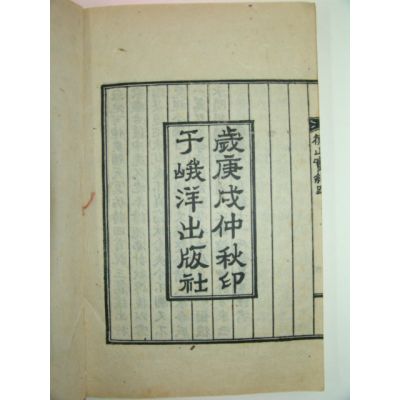 歲庚戌仲秋印
于峨洋出版社